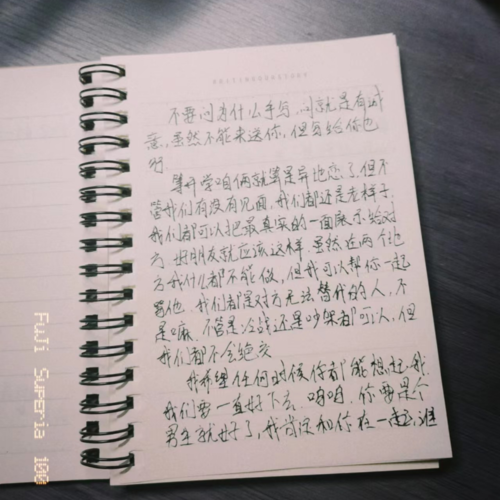 不要问为什么手写,问就是有诚
意,虽然不能来送你,但写给你也
行
等开学咱俩就算是异地恋了,但不
管我们有没有见面,我们都还是老样子,
我们都可以把最真实的一面展示给对
方,好朋友就应该这样,虽然在两个地
方我什么都不能做,但我可以帮你一起
骂他,我们都是对方无法替代的人,不
是嘛,不管是冷战还是吵架都可以,但
我们都不会绝交
我希望任何时候你都能想起我,
我们要一直好下去,哈哈,你要是个
男生就好了,我肯定和你在一起,谁
FuJi Superia 100